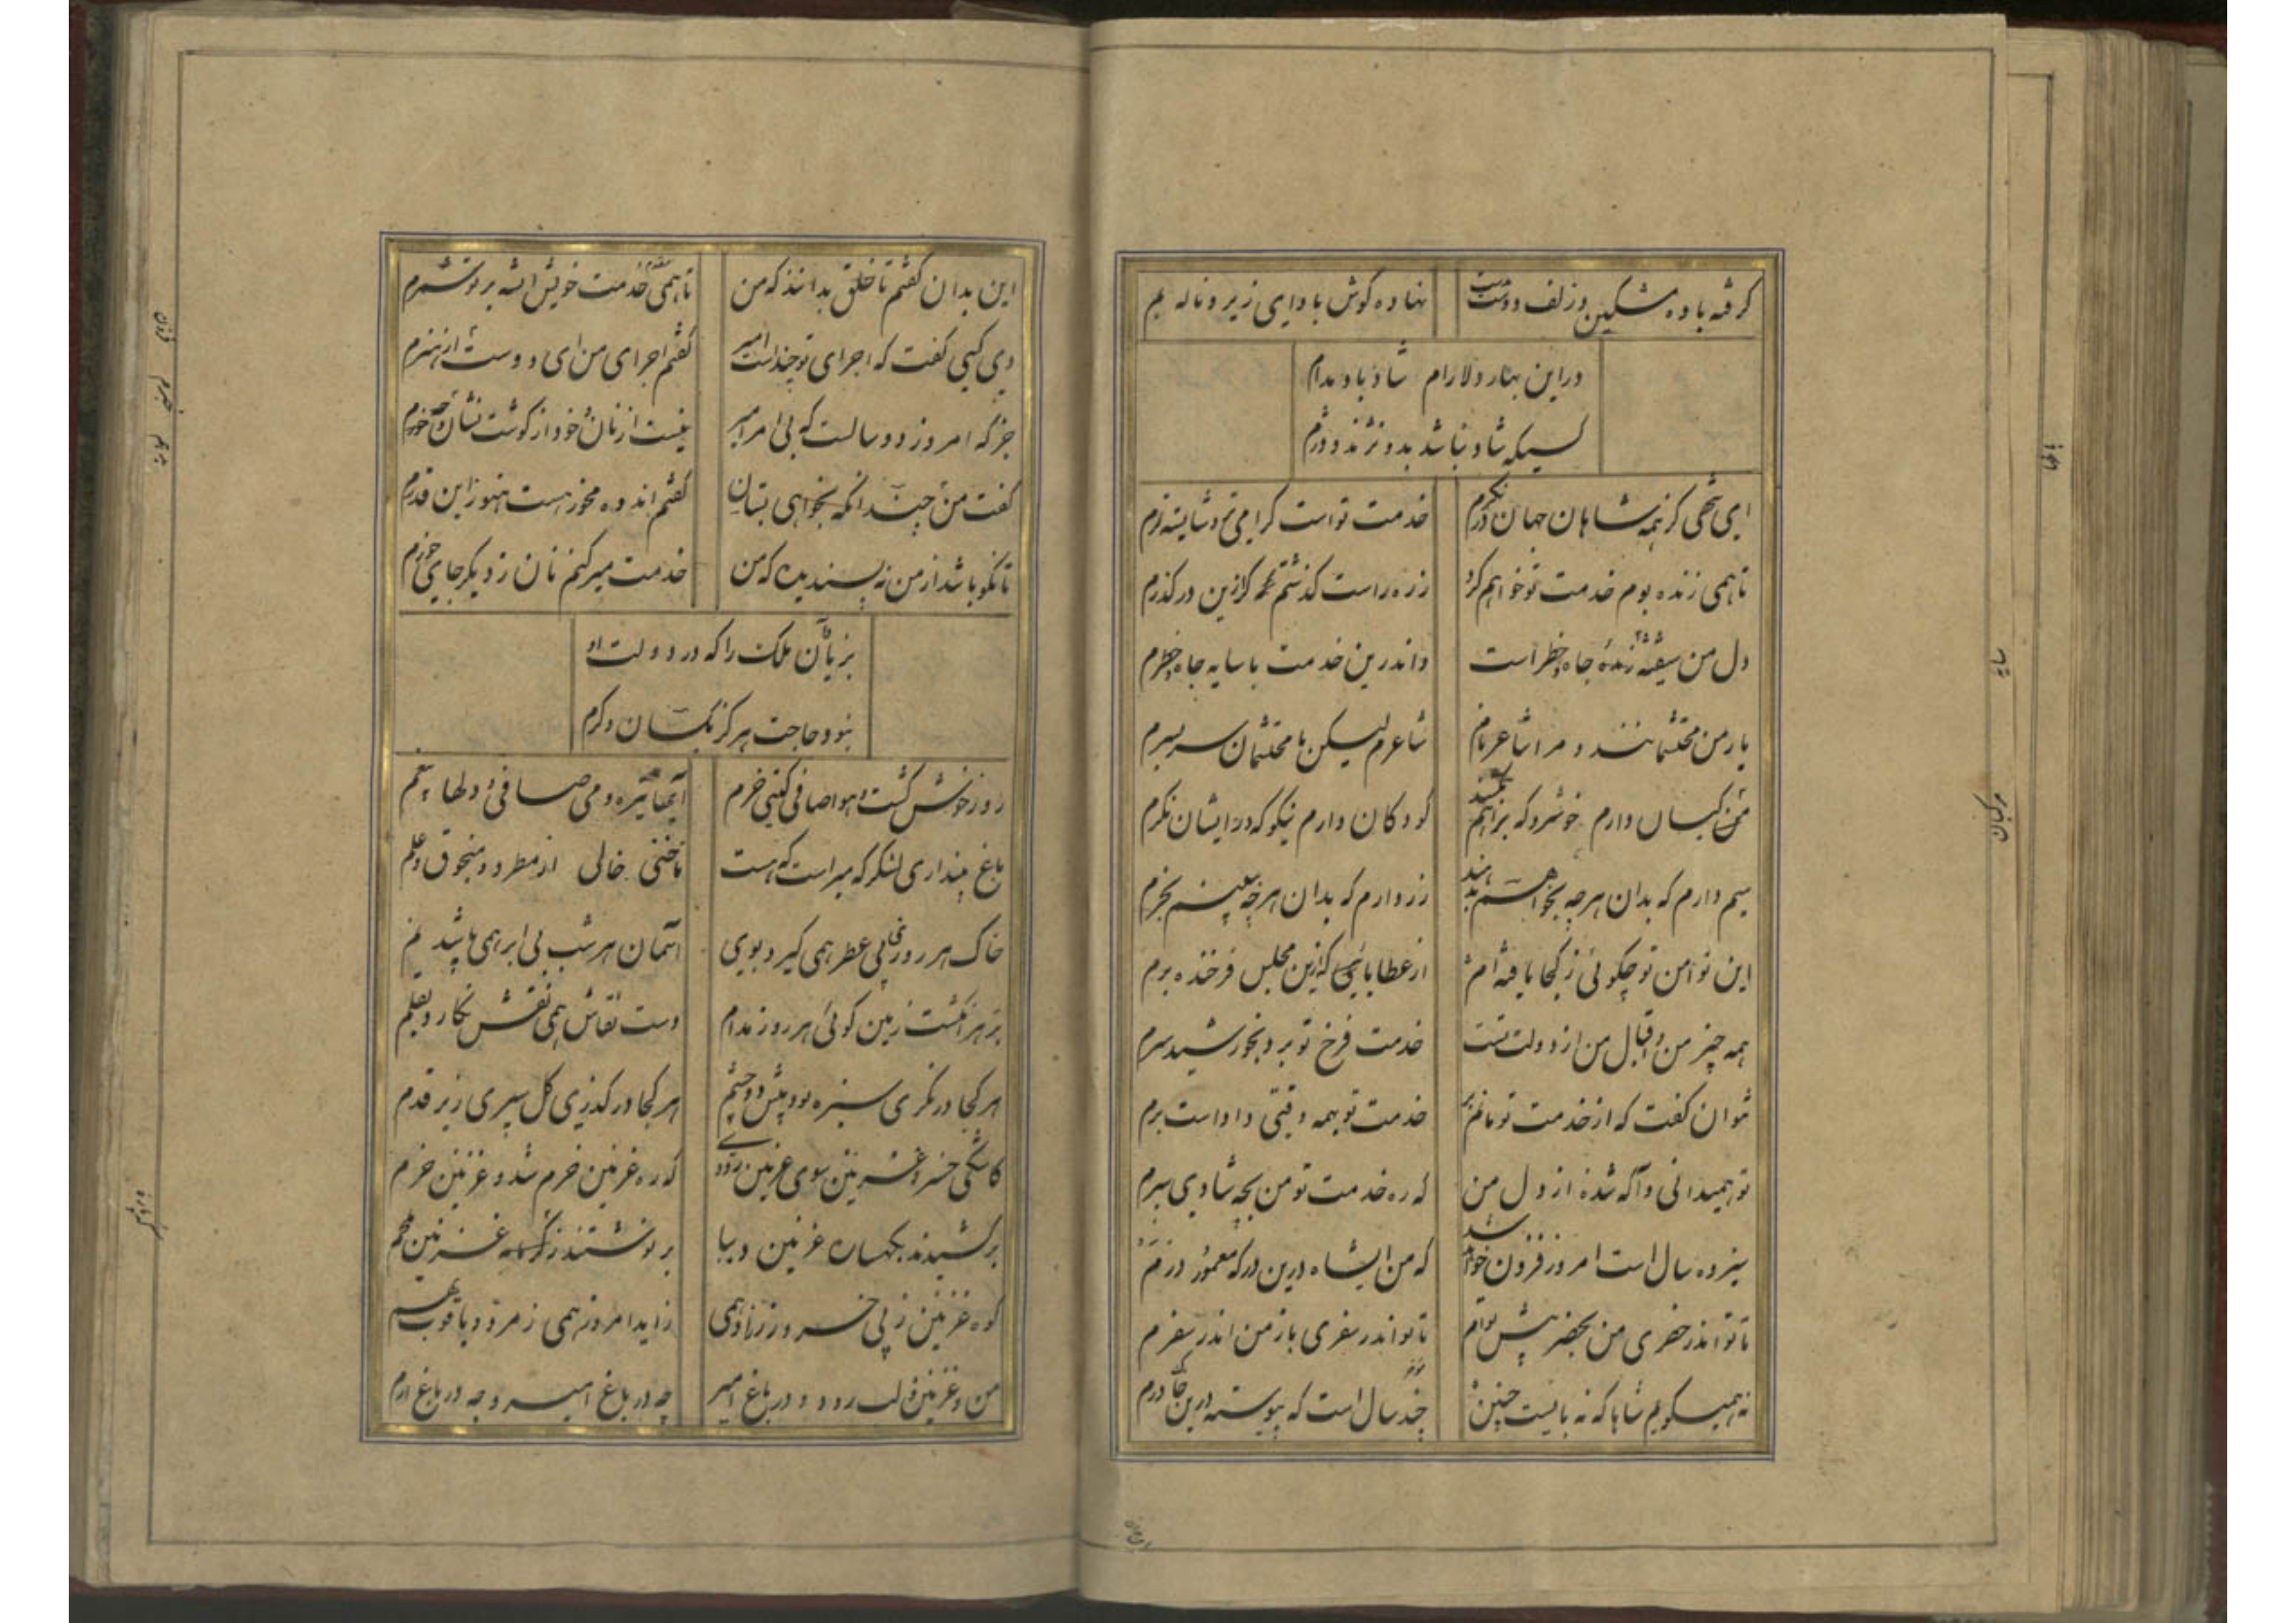 گرفته باده مشکین و زلف دوست بدست
نهاده گوش باوای زیر و ناله بم
در این بهار دلارام شاد باد مدام
کسیکه شاد نباشد بدو نژند و دژم
ای شهی کز همه شاهان جهان
خدمت تو است گرامی تر و شایسته ترم
تا همی زنده بوم خدمت تو خواهم کرد
از ره راست گذشتم گر ازین درگذرم
دل من شیفته جاه و خطر است
و اندرین خدمت با سایه جاه و خطرم
یار من محتشمانند و مرا شاعر نام
شاعرم لیکن با محتشمان سر بسرم
کسان دارم خوشرو که براهم
کودکان دارم نیکو که در ایشان نگرم
سیم دارم که بدان هر چه بخواهم بدهند
زر دارم که بدان هر چه ببینم بخرم
این نوا من تو چگوئی ز کجا یافته ام
از عطاهایی کزین مجلس فرخنده برم
همه چیز من و اقبال من از دولت تست
خدمت فرخ تو برد بخورشید سرم
نتوان گفت که از خدمت تو
خدمت تو بهمه وقتی داد است برم
تو همیدانی و آگه شده از دل من
که ره خدمت تو من بچه شادی سپرم
سیزده سال است امروز فزون خواهد شد
که من ای شاه درین درگه معمور درم
تا تو اندر حضری من بحضر پیش توام
تا تو اندر سفری باز من اندر سفرم
نه همیگویم شاها که نه بایست چنین
چند سال است که پیوسته درین
این بدان گفتم تا خلق بدانند که من
تا همی خدمت خویش ای شه بر تو شمرم
دی کسی گفت که اجرای تو چند است امیر
گفتم اجرای من ای دوست از هنرم
جز که امروز دو سالست که بی امر امیر
نیست از نان خود از گوشت نشان خورم
گفت من چند انکه بخواهی بستان
گفتم اندوه مخور هست هنوز این قدرم
تا نکو باشد از من نه پسندیده که من
خدمت میر کنم نان ز دیگر جای خورم
بزیان ملک را که در دولت او
نبود حاجت هرگز بکسان دگرم
روز خوش گشت و هوا صافی و گیتی خرم
آبها تیره و می صافی و دلها بیغم
باغ پنداری لشکرگه میر است که هست
ناختنی خالی از مطرد و منجوق و علم
خاک هر روز بی عطر همی گیرد بوی
آسمان هر شب بی ابر همی باشد نم
بر هر انگشت زمین گوئی هر روز مدام
دست نقاش همی نقش نگارد بقلم
هر کجا در نگری سبزه بود پیش دو چشم
هر کجا در گذری گل سپری زیر قدم
کاشکی خسرو غزنین سوی غزنین رودی
که ره غزنین خرم شد و غزنین خرم
برکشیدند بکهسار غزنین دیبا
برنوشتند ز غزنین
کوه غزنین ز پی خسرو زر زاد همی
زاید امروز همی زمرد و یاقوت بهم
من و غزنین و لب رود و در باغ امیر
چه در باغ امیر و چه در باغ ارم